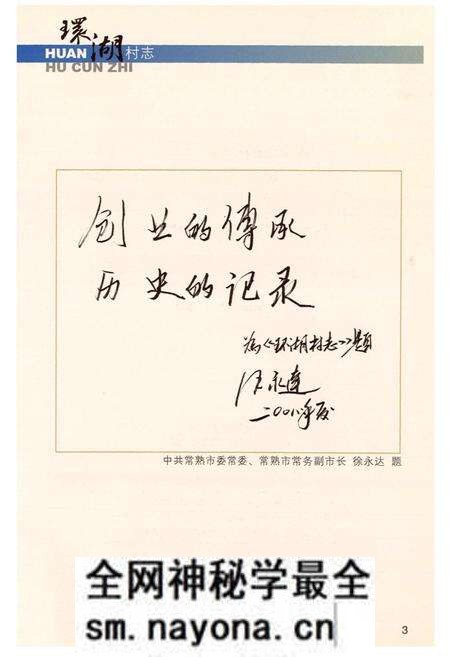 環湖村志
HUAN
HU CUN ZHI
创业的傳承
历史的记录
为《环湖村志》题
徐永達
二〇〇八年夏
中共常熟市委常委、常熟市常务副市长 徐永达 题
全网神秘学最全
sm.nayona.cn
3